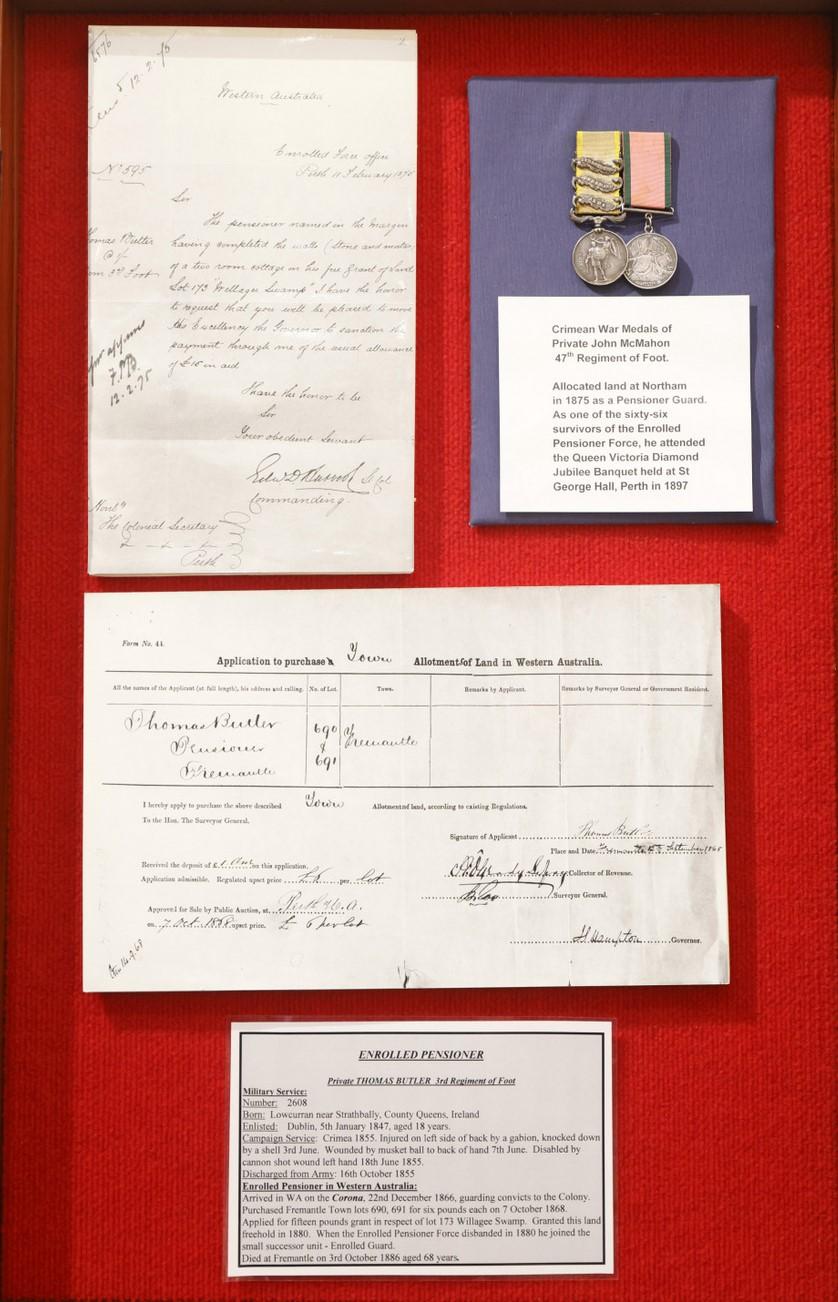 1576
12.2.75
Western Australia
Enrolled Force office
Perth 11 February 1875
No 595
Sir
The pensioner named in the Margin
Thomas Butler
having completed the walls (Stone and
of a two room cottage on his free Grant of Land
3rd Foot
Lot 173 "Willagee Swamp" I have the honor
to request that you will be pleased to move
His Excellency the Governor to sanction the
payment through me of the usual allowance
of £15 in aid
12.2.75
I have the honor to be
Sir
Your obedient Servant
Lt Col
Commanding
The Colonial Secretary
Perth
Crimean War Medals of
Private John McMahon
47th Regiment of Foot.
Allocated land at Northam
in 1875 as a Pensioner Guard.
As one of the sixty-six
survivors of the Enrolled
Pensioner Force, he attended
the Queen Victoria Diamond
Jubilee Banquet held at St
George Hall, Perth in 1897
Form No. 44.
Application to purchase a Town Allotment of Land in Western Australia.
All the names of the Applicant (at full length), his address and calling. No. of Lot. Town. Remarks by Applicant. Remarks by Surveyor General or Government Resident.
Thomas Butler 690 Fremantle
Pensioner &
Fremantle 691
I hereby apply to purchase the above described Town Allotment of land, according to existing Regulations.
To the Hon. The Surveyor General.
Signature of Applicant Thomas Butler
Place and Date, Fremantle September 1868
Received the deposit of £ on this application.
Application admissible. Regulated upset price per lot
Collector of Revenue.
Surveyor General.
Approved for Sale by Public Auction, at Perth W.A.
on 7 Oct 1868 upset price. £ 6 per lot
Hampton Governor.
ENROLLED PENSIONER
Private THOMAS BUTLER 3rd Regiment of Foot
Military Service:
Number: 2608
Born: Lowcurran near Strathbally, County Queens, Ireland
Enlisted: Dublin, 5th January 1847, aged 18 years.
Campaign Service: Crimea 1855. Injured on left side of back by a gabion, knocked down
by a shell 3rd June. Wounded by musket ball to back of hand 7th June. Disabled by
cannon shot wound left hand 18th June 1855.
Discharged from Army: 16th October 1855
Enrolled Pensioner in Western Australia:
Arrived in WA on the Corona, 22nd December 1866, guarding convicts to the Colony.
Purchased Fremantle Town lots 690, 691 for six pounds each on 7 October 1868.
Applied for fifteen pounds grant in respect of lot 173 Willagee Swamp. Granted this land
freehold in 1880. When the Enrolled Pensioner Force disbanded in 1880 he joined the
small successor unit - Enrolled Guard.
Died at Fremantle on 3rd October 1886 aged 68 years.